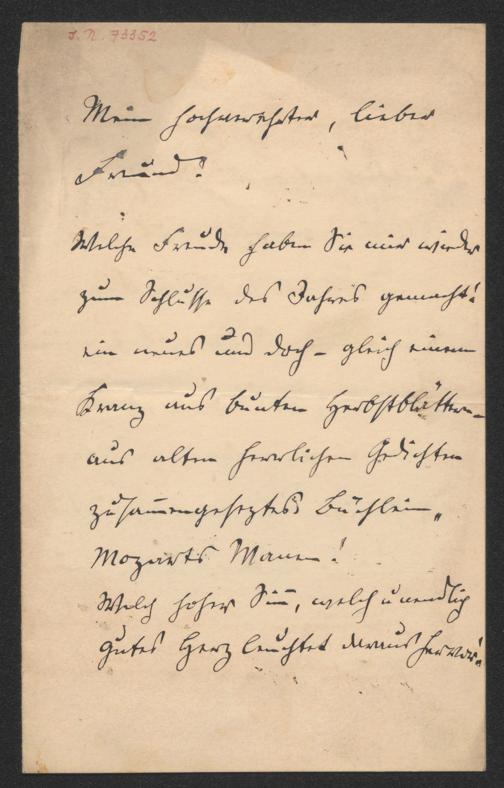 J. N. 73352
Mein hochverehrter, lieber
Freund!
Welche Freude haben Sie mir wieder
zum Schlusse des Jahres gemacht!
ein neues und doch – gleich einem
Kranz aus bunten Herbstblättern –
aus alten herrlichen Gedichten
zusammengesetztes Büchlein „
Mozarts Manen!
Welch hoher Sinn, welch unendlich
gutes Herz leuchtet daraus hervor!